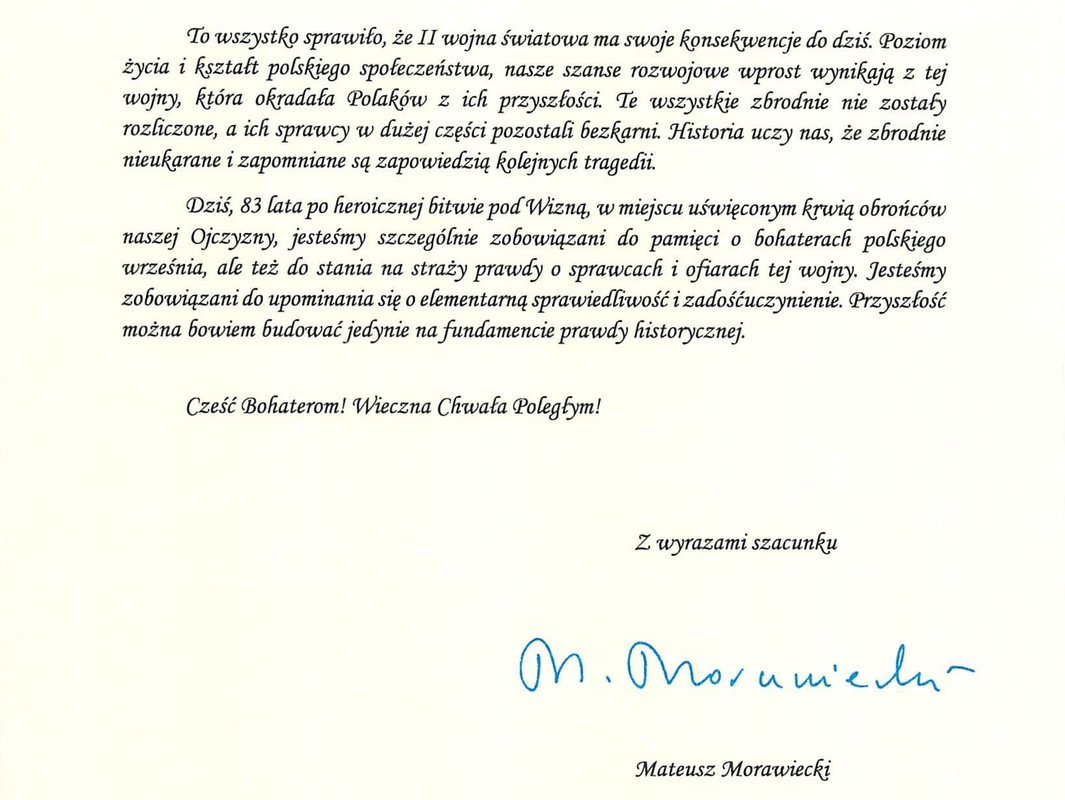 To wszystko sprawiło, że II wojna światowa ma swoje konsekwencje do dziś. Poziom
życia i kształt polskiego społeczeństwa, nasze szanse rozwojowe wprost wynikają z tej
wojny, która okradała Polaków z ich przyszłości. Te wszystkie zbrodnie nie zostały
rozliczone, a ich sprawcy w dużej części pozostali bezkarni. Historia uczy nas, że zbrodnie
nieukarane i zapomniane są zapowiedzią kolejnych tragedii.
Dziś, 83 lata po heroicznej bitwie pod Wizną, w miejscu uświęconym krwią obrońców
naszej Ojczyzny, jesteśmy szczególnie zobowiązani do pamięci o bohaterach polskiego
września, ale też do stania na straży prawdy o sprawcach i ofiarach tej wojny. Jesteśmy
zobowiązani do upominania się o elementarną sprawiedliwość i zadośćuczynienie. Przyszłość
można bowiem budować jedynie na fundamencie prawdy historycznej.
Cześć Bohaterom! Wieczna Chwała Poległym!
Z wyrazami szacunku
M. Morawiecki
Mateusz Morawiecki